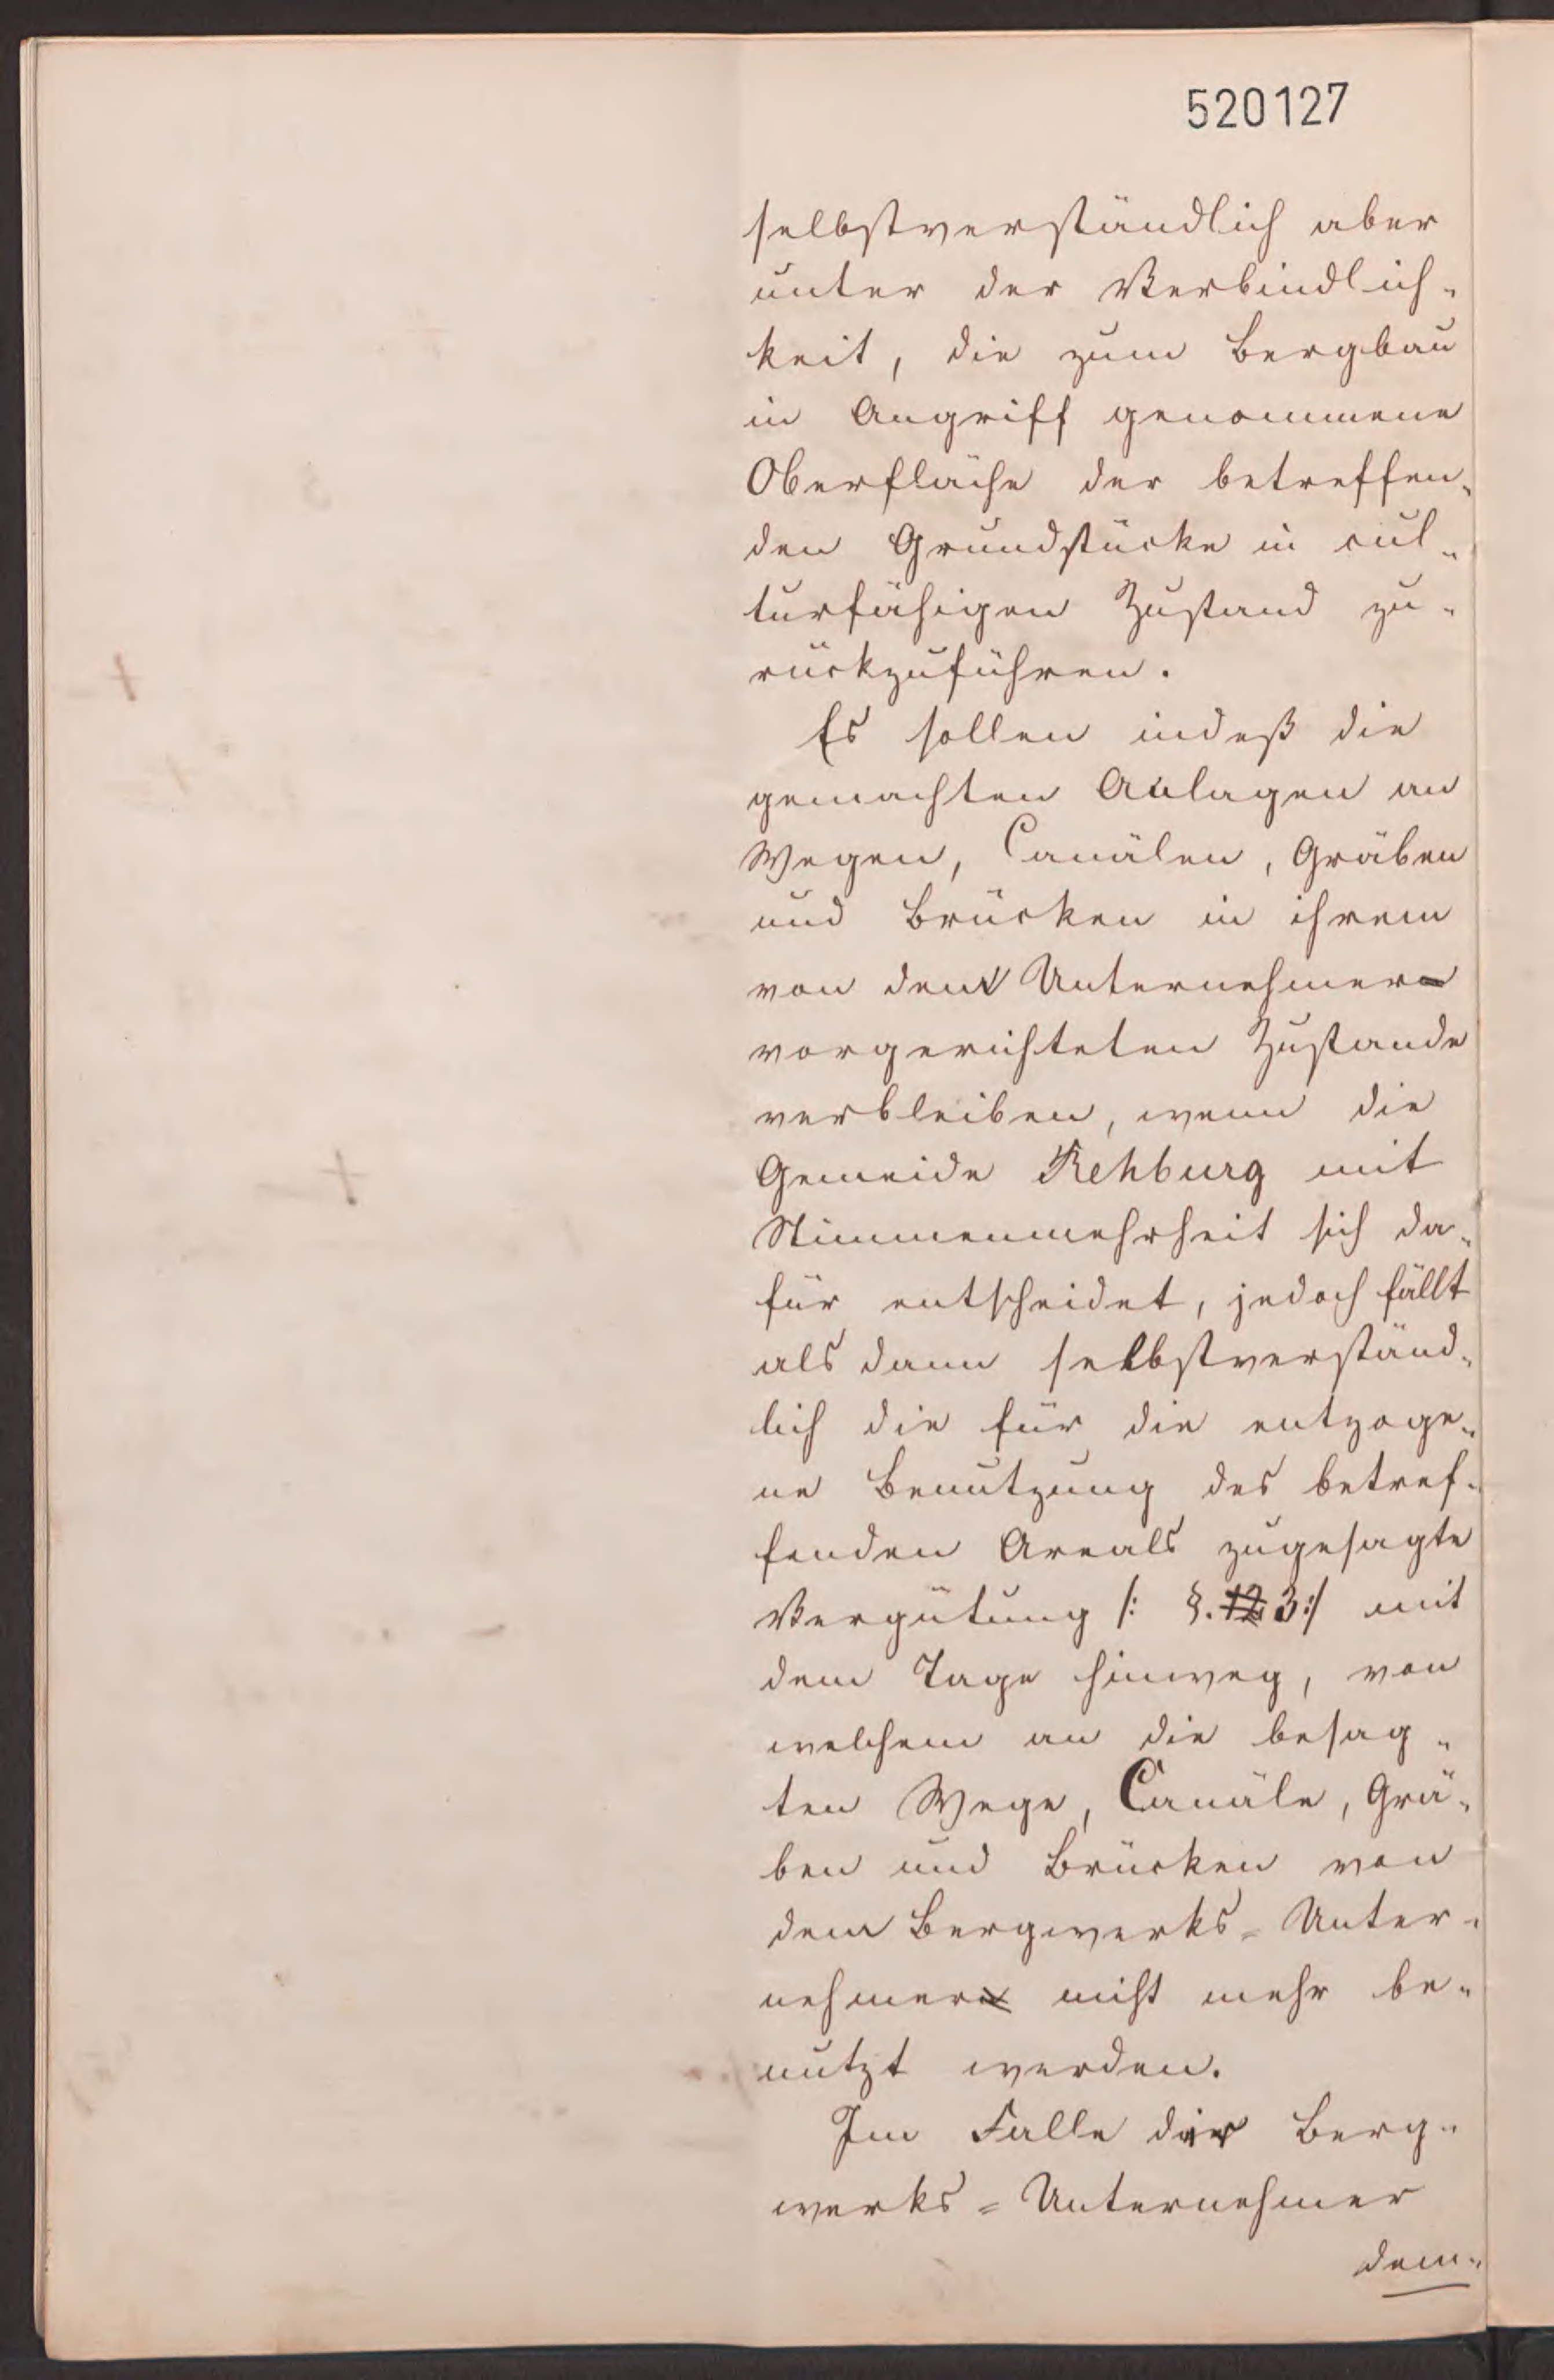 520127
selbstverständlich aber
unter der Verbindlich-
keit, die zum Bergbau
in Angriff genommene
Oberfläche der betreffen-
den Grundstücke in cul-
turfähigen Zustand zu-
rückzuführen.
Es sollen indeß die
gemachten Anlagen an
Wegen, Canälen, Gräben
und Brücken in ihrem
von dem Unternehmer
vorgerichteten Zustande
verbleiben, wenn die
Gemeide Rehburg mit
Stimmenmehrheit sich da-
für entscheidet, jedoch fällt
als dann selbstverständ-
lich die für die entzoge-
ne Benutzung des betref-
fenden Areals zugesagte
Vergütung /: §. 12 3 :/ mit
dem Tage hinweg, von
welchem an die besag-
ten Wege, Canäle, Grä-
ben und Brücken von
dem Bergwerks-Unter-
nehmer nicht mehr be-
nutzt werden.
Im Falle der Berg-
werks-Unternehmer
dem-